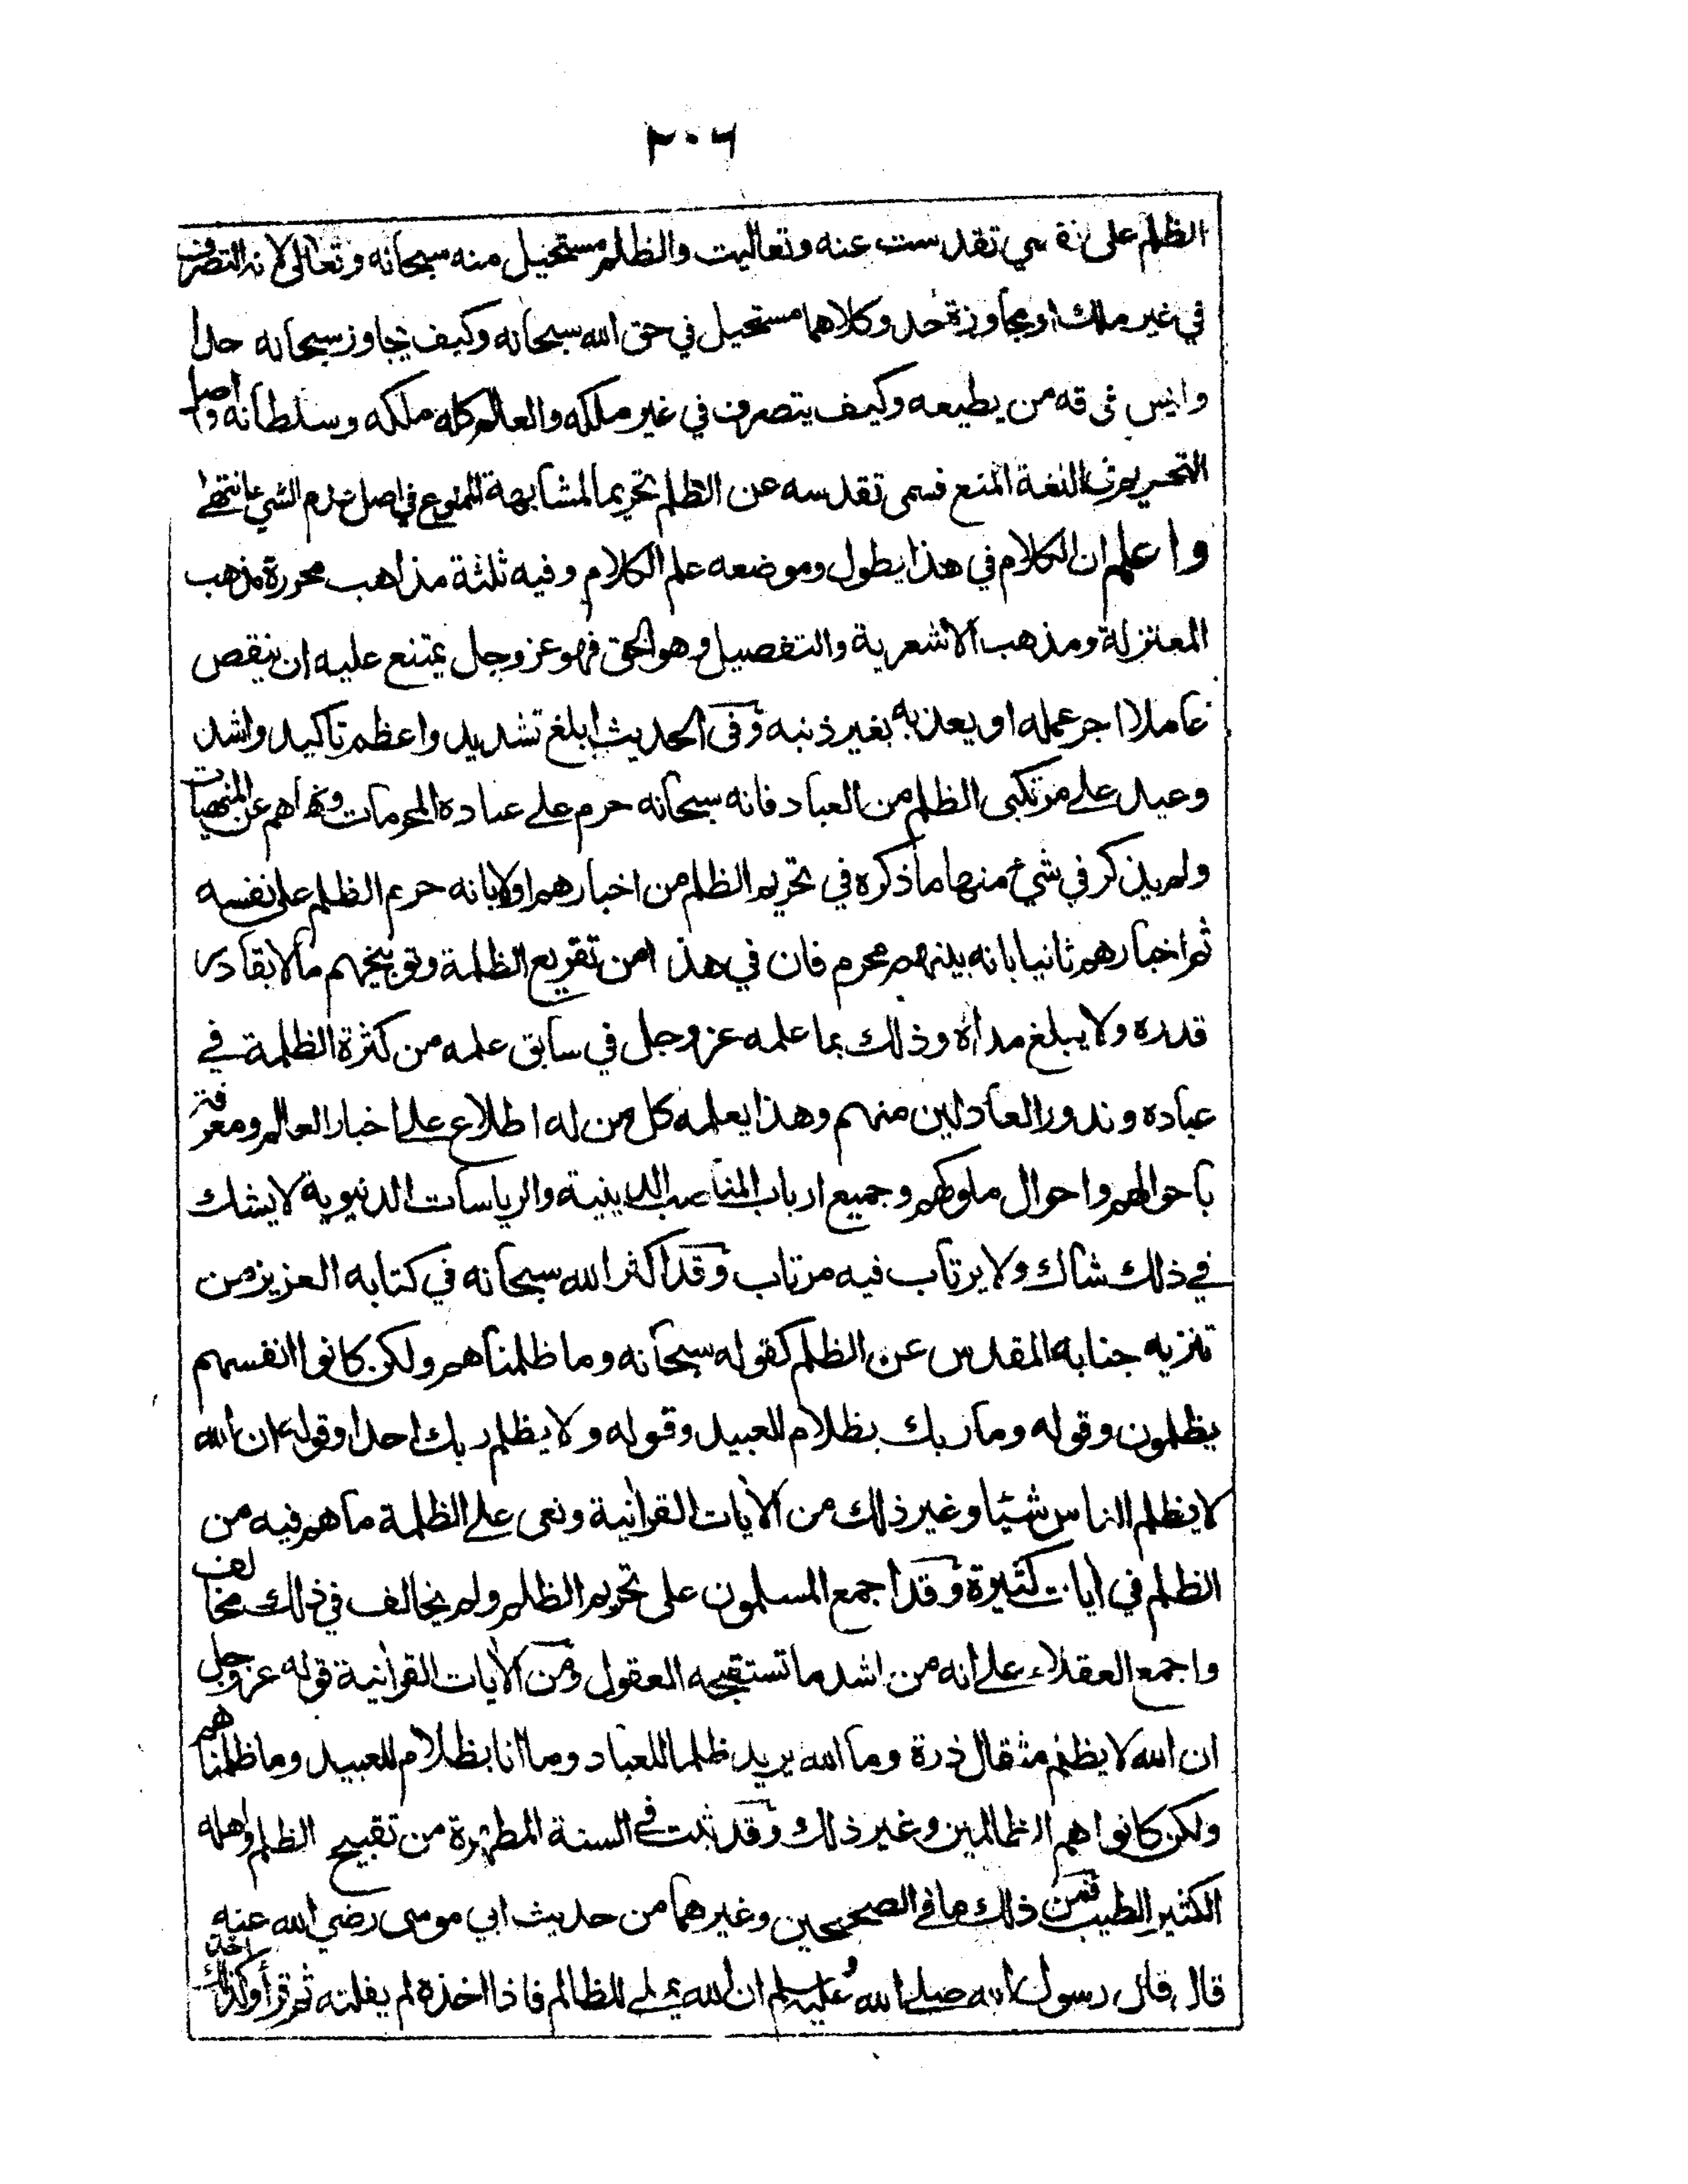 ٢٠٦
الظلم على نفسي تقدست عنه وتعاليت والظلم مستحيل منه سبحانه وتعالى لانه التصرف
في غير ملك او مجاوزة حد وكلاهما مستحيل في حق الله سبحانه وكيف يجاوز سبحانه حدا
وليس فوقه من يطيعه وكيف يتصرف في غير ملكه والعالم كله ملكه وسلطانه واصل
التحريم في اللغة المنع فسمى تقدسه عن الظلم تحريما لمشابهة الممنوع في اصل عدم الشي انتهى
واعلم ان الكلام في هذا يطول وموضعه علم الكلام وفيه ثلثة مذاهب محررة مذهب
المعتزلة ومذهب الاشعرية والتفصيل وهو الحق فهو عز وجل يمتنع عليه ان ينقص
عاملا اجر عمله او يعذبه بغير ذنبه وفى الحديث ابلغ تشديد واعظم تاكيد واشد
وعيد على مرتكبى الظلم من العباد فانه سبحانه حرم على عباده المحرمات ونهاهم عن المنهيات
ولم يذكر في شيء منها ما ذكره في تحريم الظلم من اخبارهم اولا بانه حرم الظلم على نفسه
ثم اخبارهم ثانيا بانه بينهم محرم فان في هذا من تقريع الظلمة وتوبيخهم ما لا يقادر
قدره ولا يبلغ مداه وذلك بما علمه عز وجل في سابق علمه من كثرة الظلمة في
عباده وندور العادلين منهم وهذا يعلمه كل من له اطلاع على اخبار العالم ومعرفة
باحوالهم واحوال ملوكهم وجميع ارباب المناصب الدينية والرياسات الدنيوية لا يشك
في ذلك شاك ولا يرتاب فيه مرتاب وقد اكثر الله سبحانه في كتابه العزيز من
تنزيه جنابه المقدس عن الظلم كقوله سبحانه وما ظلمناهم ولكن كانوا انفسهم
يظلمون وقوله وما ربك بظلام للعبيد وقوله ولا يظلم ربك احدا وقوله ان الله
لا يظلم الناس شيئا وغير ذلك من الايات القرانية ونعى على الظلمة ما هم فيه من
الظلم في ايات كثيرة وقد اجمع المسلمون على تحريم الظلم ولم يخالف في ذلك مخالف
واجمع العقلاء على انه من اشد ما تستقبحه العقول ومن الايات القرانية قوله عز وجل
ان الله لا يظلم مثقال ذرة وما الله يريد ظلما للعباد وما انا بظلام للعبيد وما ظلمناهم
ولكن كانوا هم الظالمين وغير ذلك وقد ثبت في السنة المطهرة من تقبيح الظلم واهله
الكثير الطيب فمن ذلك ما في الصحيحين وغيرهما من حديث ابي موسى رضي الله عنه
قال قال رسول الله صلى الله عليه وسلم ان الله يملي للظالم فاذا اخذه لم يفلته ثم قرأ وكذلك اخذ